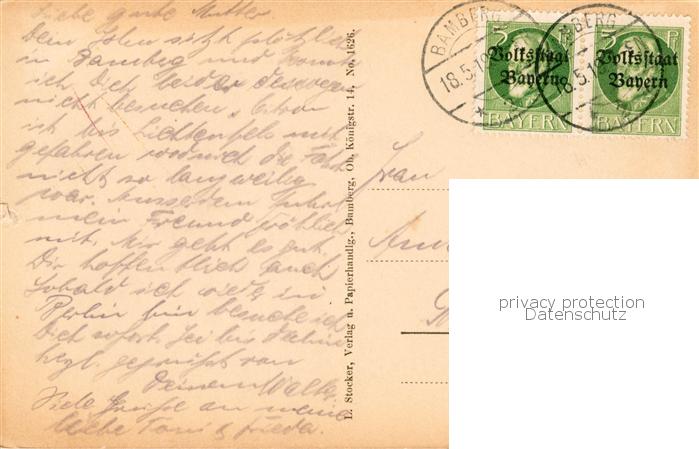 Liebe gute Mutter
Dein Sohn sitzt plötzlich
in Bamberg und konnte
ich Dich leider
nicht besuchen.
ich bis Lichtenfels mit
gefahren wodurch die Fahrt
nicht so langweilig
war. Ausserdem fuhr
mein Freund Fröhlich
mit. Mir geht es gut
Dir hoffentlich auch
Sobald ich wieder in
Berlin bin besuche ich
Dich sofort. Sei bis dahin
herzl. gegrüsst von
Deinem Walter
Viele Grüsse an meine
liebe Toni & Frieda.
L. Stocker, Verlag u. Papierhandlg., Bamberg, Ob. Königstr. 14. No. 1626.
BAMBERG
18.5.19
BAMBERG
18.5.19
5 Pf
Volksstaat
Bayern
BAYERN
5 Pf
Volksstaat
Bayern
BAYERN
Frau
privacy protection
Datenschutz